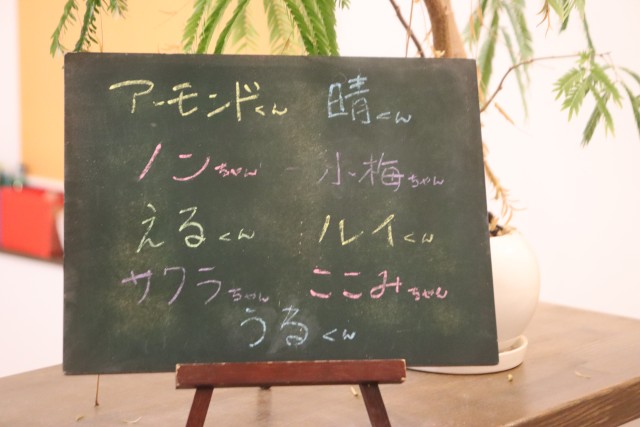 アーモンドくん 晴くん
ノンちゃん 小梅ちゃん
えるくん ルイくん
サクラちゃん ここみちゃん
うるくん